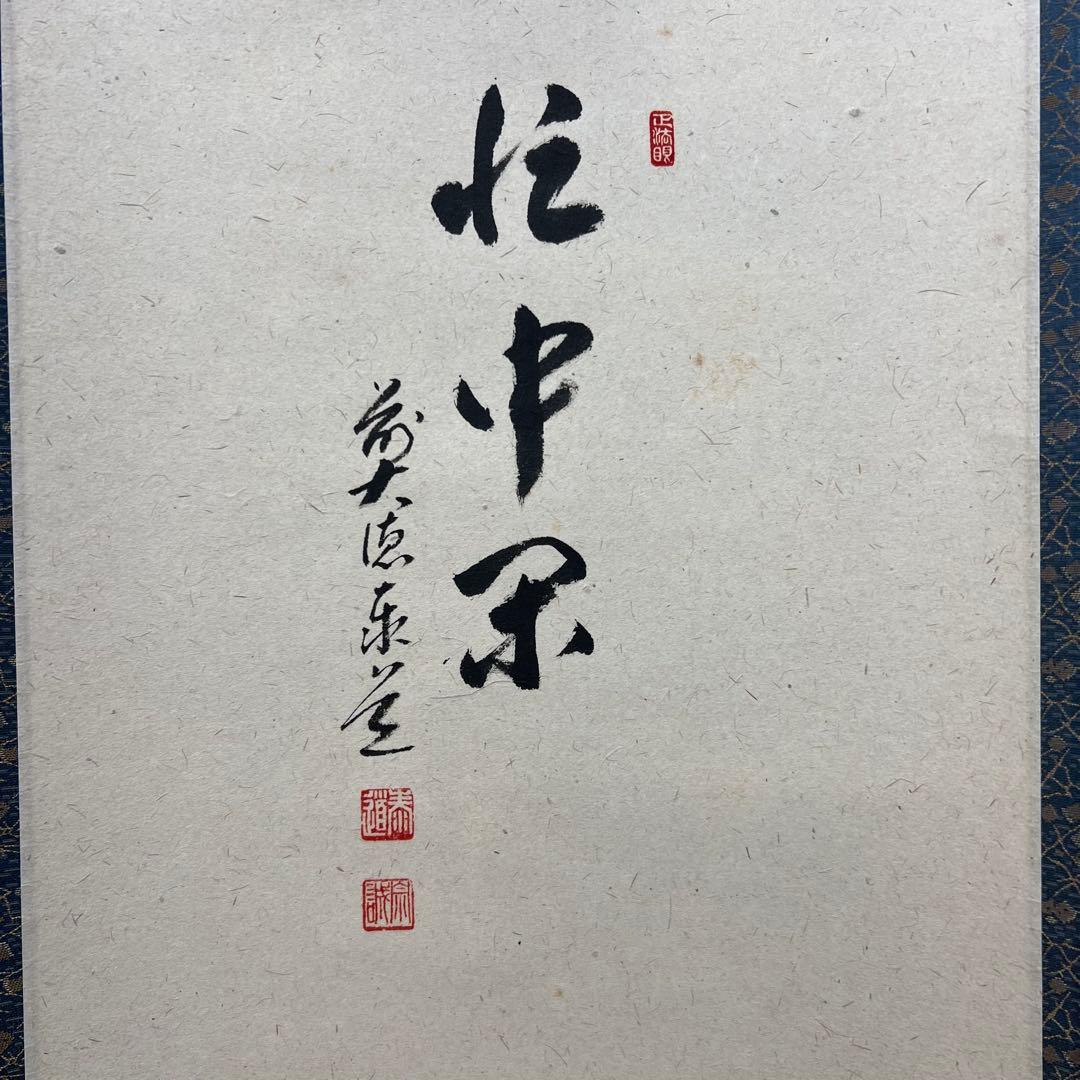 正法眼
忙中閑
前大徳泰道
泰道